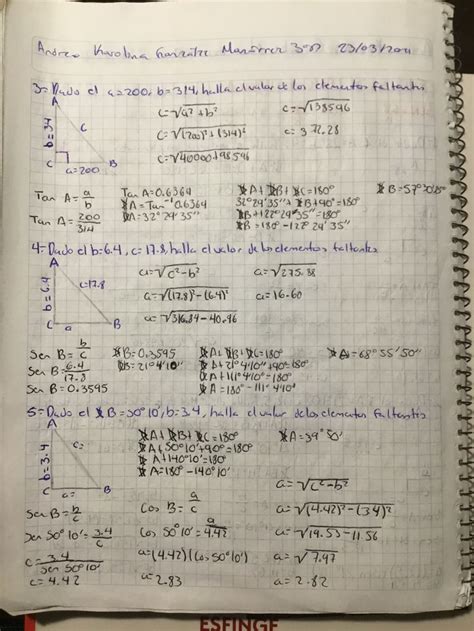 Andrea Karolina González Monterrer 3°
3=Dado el a=200, b=314, halla el valor de los elementos faltantes
A
b=34
c
C a=200 B
c=√a²+b²
c=√(200)²+(314)²
c=√40000+98596
c=√138596
c= 372.28
Tan A= a/b
Tan A= 200/314
Tan A=0.6364
∡A=Tan⁻¹0.6364
∡A=32°24'35''
∡A+∡B+∡C=180°
32°24'35''+∡B+90°=180°
∡B+122°24'35''=180°
∡B=180°-122°24'35''
4=Dado el b=6.4, c=17.8, halla el valor de los elementos faltantes
A
b=6.4
c=17.8
C a B
a=√c²-b²
a=√(17.8)²-(6.4)²
a=√316.84-40.96
a=√275.88
a=16.60
Sen B= b/c
Sen B= 6.4/17.8
Sen B=0.3595
∡B=0.3595
∡B=21°4'10''
∡A+∡B+∡C=180°
∡A+21°4'10''+90°=180°
∡A+111°4'10''=180°
∡A=180°-111°4'10''
∡A=68°55'50''
5=Dado el ∡B=50°10', b=3.4, halla el valor de los elementos faltantes
A
b=3.4
c=
C a= B
∡A+∡B+∡C=180°
∡A+50°10'+90°=180°
∡A+140°10'=180°
∡A=180°-140°10'
∡A=39°50'
Sen B= b/c
Sen 50°10'= 3.4/c
c= 3.4/Sen 50°10'
c=4.42
Cos B= a/c
Cos 50°10'= a/4.42
a=(4.42)(Cos 50°10')
a=2.83
a=√c²-b²
a=√(4.42)²-(3.4)²
a=√19.53-11.56
a=√7.97
a=2.82
ESFINGE